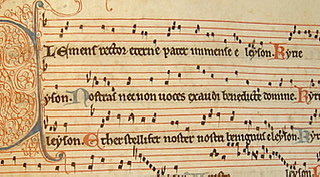 Clemens rector eterne pater immense e leyson. Kyrie
yson. Nostras necnon uoces exaudi benedicte domine. Kyri
leyson. Ether stellifer noster nostri benignus eleyson. Ky